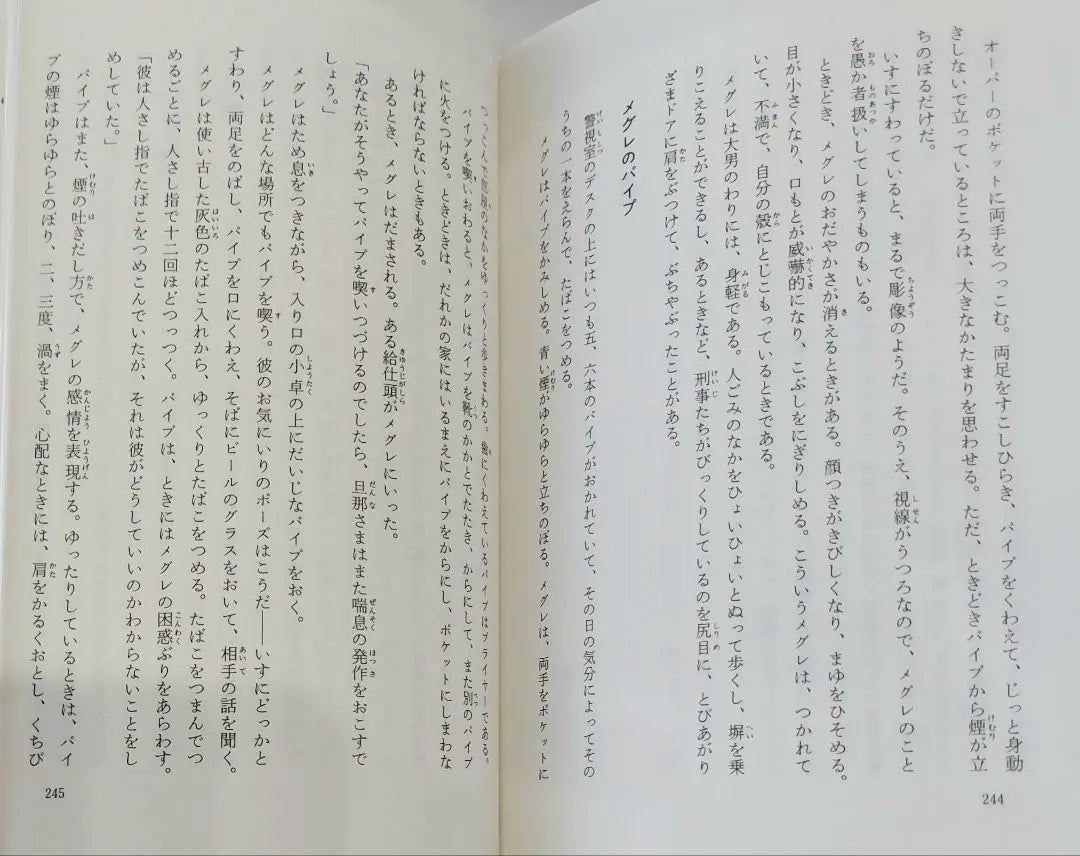 オーバーのポケットに両手をつっこむ。両足をすこしひらき、パイプをくわえて、じっと身動
きしないで立っているところは、大きなかたまりを思わせる。ただ、ときどきパイプから煙が立
ちのぼるだけだ。
いすにすわっていると、まるで彫像のようだ。そのうえ、視線がうつろなので、メグレのこと
を愚か者扱いしてしまうものもいる。
ときどき、メグレのおだやかさが消えるときがある。顔つきがきびしくなり、まゆをひそめる。
目が小さくなり、口もとが威嚇的になり、こぶしをにぎりしめる。こういうメグレは、つかれて
いて、不満で、自分の殻にとじこもっているときである。
メグレは大男のわりには、身軽である。人ごみのなかをひょいひょいとぬって歩くし、塀を乗
りこえることができるし、あるときなど、刑事たちがびっくりしているのを尻目に、とびあがり
ざまドアに肩をぶつけて、ぶちやぶったことがある。
メグレのパイプ
警視室のデスクの上にはいつも五、六本のパイプがおかれていて、その日の気分によってその
うちの一本をえらんで、たばこをつめる。
メグレはパイプをかみしめる。青い煙がゆらゆらと立ちのぼる。メグレは、両手をポケットに
つっこんで部屋のなかをゆっくりと歩きまわる。歯にくわえているパイプはブライヤーである。
パイプを喫いおわると、メグレはパイプを靴のかかとでたたき、からにして、また別のパイプ
に火をつける。ときどきは、だれかの家にはいるまえにパイプをからにし、ポケットにしまわな
ければならないときもある。
あるとき、メグレはだまされる。ある給仕頭がメグレにいった。
「あなたがそうやってパイプを喫いつづけるのでしたら、旦那さまはまた喘息の発作をおこすで
しょう。」
メグレはため息をつきながら、入り口の小卓の上にだいじなパイプをおく。
メグレはどんな場所でもパイプを喫う。彼のお気にいりのポーズはこうだ――いすにどっかと
すわり、両足をのばし、パイプを口にくわえ、そばにビールのグラスをおいて、相手の話を聞く。
メグレは使い古した灰色のたばこ入れから、ゆっくりとたばこをつめる。たばこをつまんでつ
めるごとに、人さし指で十二回ほどつっつく。パイプは、ときにはメグレの困惑ぶりをあらわす。
「彼は人さし指でたばこをつめこんでいたが、それは彼がどうしていいのかわからないことをし
めしていた。」
パイプはまた、煙の吐きだし方で、メグレの感情を表現する。ゆったりしているときは、パイ
プの煙はゆらゆらとのぼり、二、三度、渦をまく。心配なときには、肩をかるくおとし、くちび
244
245